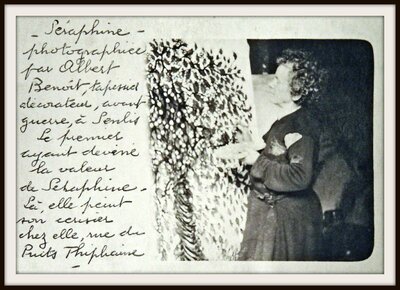 - Séraphine -
photographiée
par Albert
Benoit, tapissier
décorateur, avant
guerre, à Senlis
Le premier
ayant deviné
la valeur
de Séraphine -
Là elle peint
son cerisier
chez elle, rue du
Puits Thiphaine